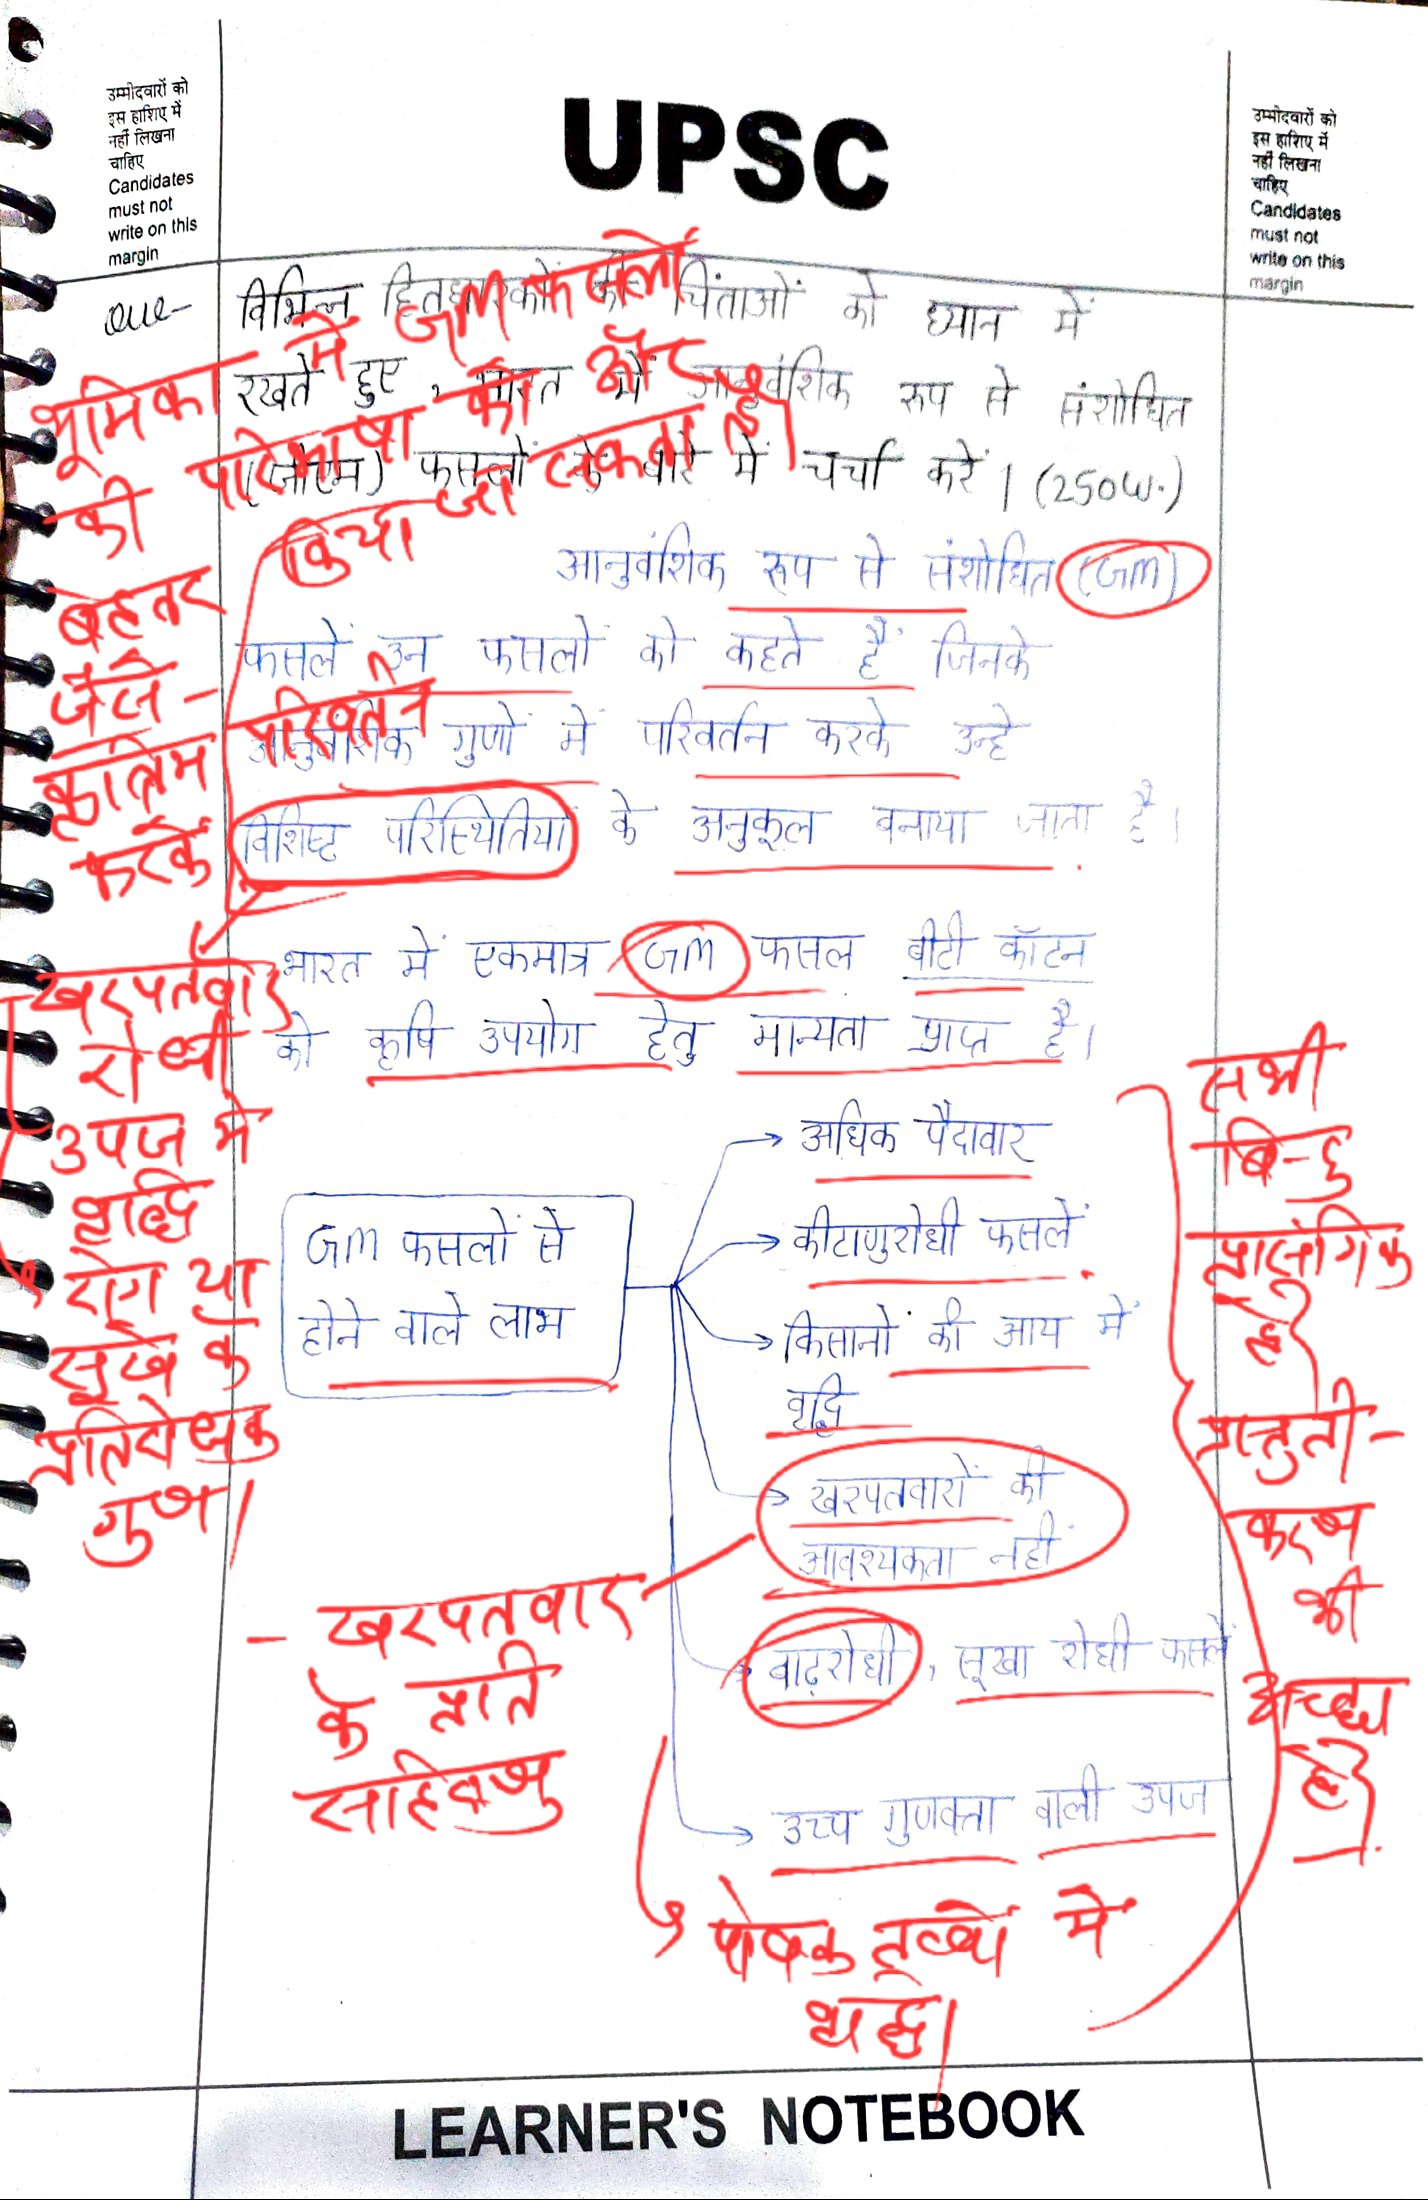 उम्मीदवारों को
इस हाशिए में
नहीं लिखना
चाहिए
Candidates
must not
write on this
margin
UPSC
उम्मीदवारों को
इस हाशिए में
नहीं लिखना
चाहिए
Candidates
must not
write on this
margin
que- विभिन्न हितधारकों की चिंताओं को ध्यान में
रखते हुए, भारत में आनुवंशिक रूप से संशोधित
(जीएम) फसलों के बारे में चर्चा करें। (250W.)
भूमिका में GM फसलों
की परिभाषा को और
बेहतर किया जा सकता है।
जैसे-
कृत्रिम परिवर्तन
करके
आनुवंशिक रूप से संशोधित (GM)
फसलें उन फसलों को कहते हैं जिनके
आनुवंशिक गुणों में परिवर्तन करके उन्हे
विशिष्ट परिस्थितियों के अनुकूल बनाया जाता है।
खरपतवार
रोधी
उपज मे
वृद्धि
रोग या
सूखे के
प्रतिरोधक
गुण।
भारत में एकमात्र GM फसल बीटी कॉटन
को कृषि उपयोग हेतु मान्यता प्राप्त है।
GM फसलों से
होने वाले लाभ
अधिक पैदावार
कीटाणुरोधी फसलें
किसानों की आय में
वृद्धि
खरपतवारों की
आवश्यकता नहीं
- खरपतवार
के प्रति
सहिष्णु
बाढ़रोधी, सूखा रोधी फसलें
उच्च गुणवत्ता वाली उपज
पोषक तत्वों में
वृद्धि।
सभी
बिन्दु
प्रासंगिक
है
प्रस्तुती-
करण
भी
अच्छा
है।
LEARNER'S NOTEBOOK